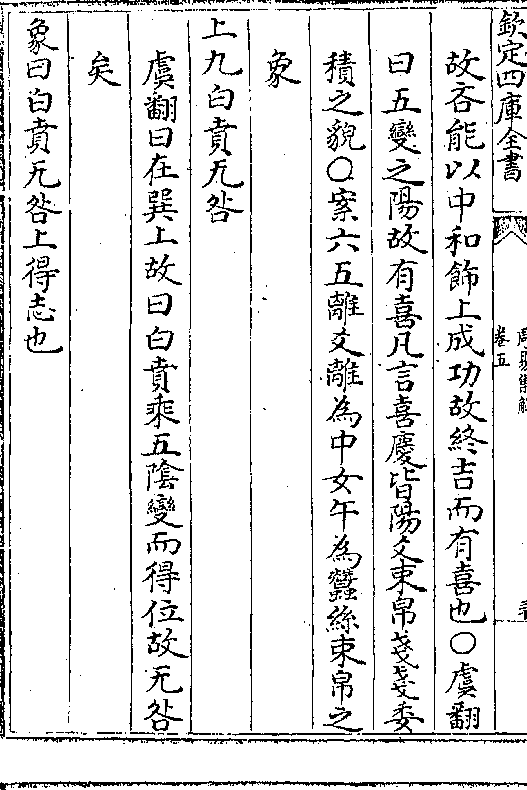 欽定四庫全書
周易集解
卷五
故吝能以中和飾上成功故終吉而有喜也○虞翻
曰五變之陽故有喜凡言喜慶皆陽爻束帛戔戔委
積之貌○案六五離爻離為中女午為蠶絲束帛之
象
上九白賁无咎
虞翻曰在巽上故曰白賁乘五陰變而得位故无咎
矣
象曰白賁无咎上得志也